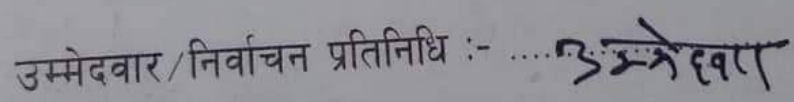 उम्मेदवार/निर्वाचन प्रतिनिधि :- .....उम्मेदवार